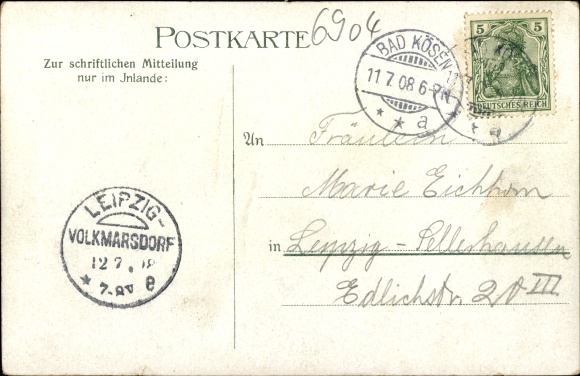 POSTKARTE
6904
Zur schriftlichen Mitteilung
nur im Jnlande:
BAD KÖSEN
11.7.08 6-7N
* * a
5 5
DEUTSCHES REICH
An Fräulein
Marie Eichhorn
in Leipzig-Sellerhausen
Edlichstr. 20 III
LEIPZIG-
VOLKMARSDORF
12.7.08
* 7-8V e